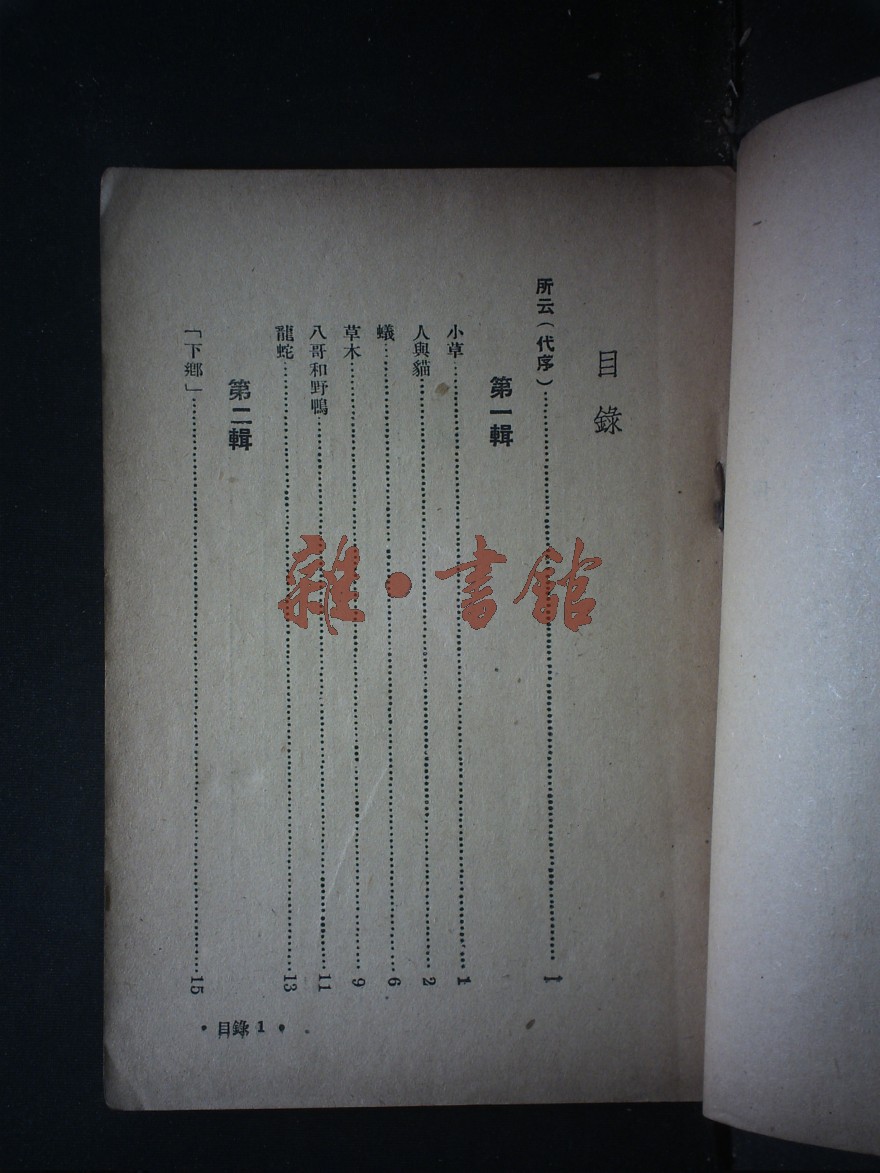 目錄
所云（代序）……1
第一輯
小草……1
人與貓……2
蟻……6
草木……9
八哥和野鴨……11
龍蛇……13
第二輯
「下鄉」……15
•目錄1•
雜•書館